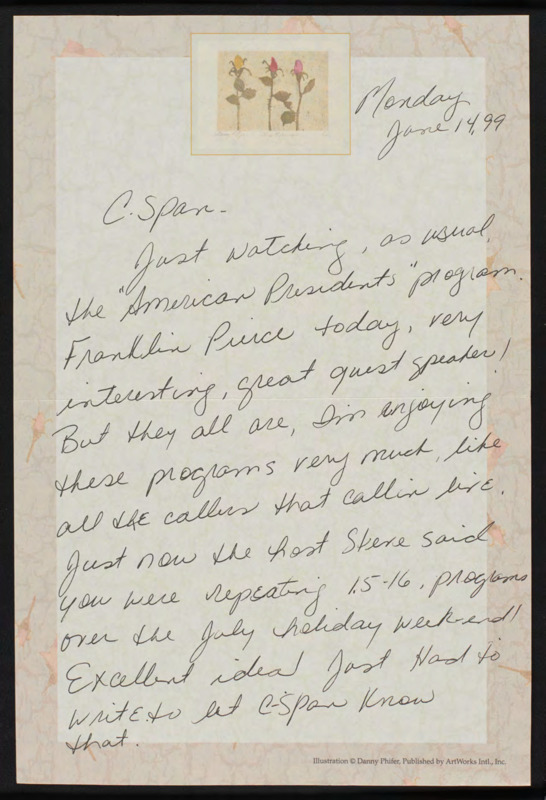 Monday
June 14, 99
C-Span-
Just watching, as usual,
the "American Presidents" program.
Franklin Pierce today, very
interesting, great guest speaker!
But they all are, I'm enjoying
these programs very much, like
all the callers that callin live.
Just now the host Steve said
you were repeating 15-16, programs
over the July holiday week-end!
Excellent idea! Just Had to
writE to let C-Span Know
that.
Illustration © Danny Phifer, Published by ArtWorks Intl., Inc.